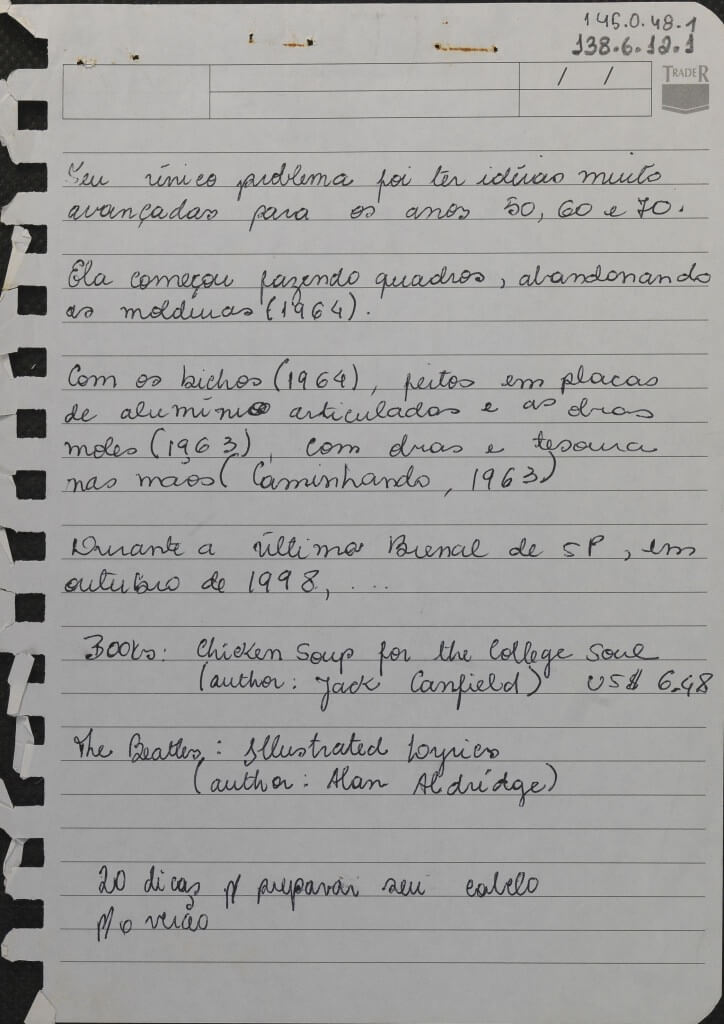 146.0.48.1
138.6.12.1
/ /
TRADER
Seu único problema foi ter idéias muito
avançadas para os anos 50, 60 e 70.
Ela começou fazendo quadros, abandonando
as molduras (1964).
Com os bichos (1964), feitos em placas
de alumínio articulados e as obras
moles (1963), com obras e tesoura
nas mãos (Caminhando, 1963)
Durante a última Bienal de SP, em
outubro de 1998, ...
Books: Chicken Soup for the College Soul
(author: Jack Canfield) US$ 6.48
The Beatles: Illustrated Lyrics
(author: Alan Aldridge)
20 dicas p/ preparar seu cabelo
p/ o verão